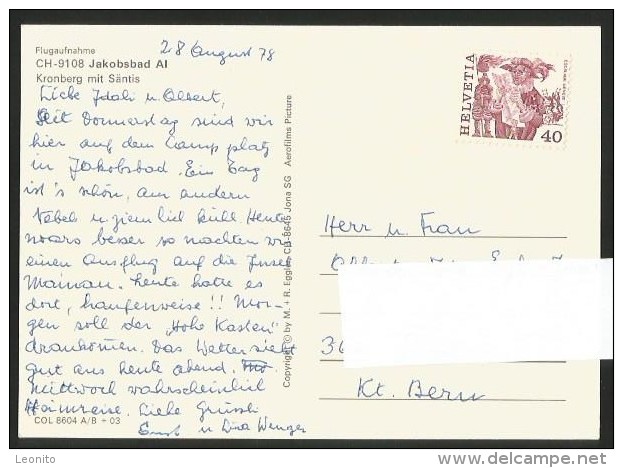 Flugaufnahme
28 August 78
CH-9108 Jakobsbad AI
Kronberg mit Säntis
Liebe Idali u. Albert,
Seit Donnerstag sind wir
hier auf dem Campplatz
in Jakobsbad. Ein Tag
ist's schön, am andern
Nebel u. ziemlich kühl. Heute
wars besser so machten wir
einen Ausflug auf die Insel
Mainau. Leute hatte es
dort, haufenweise!! Mor-
gen soll der "Hohe Kasten"
drankommen. Das Wetter sieht
gut aus heute abend.
Mittwoch wahrscheinlich
Heimreise. Liebe Grüssli
Ernst u Lina Wenger
COL 8604 A/B + 03
Copyright © by M. + R. Eggler, CH-8645 Jona SG Aerofilms Picture
HELVETIA
40
Herr u. Frau
36
Kt. Bern
www.delcampe.net